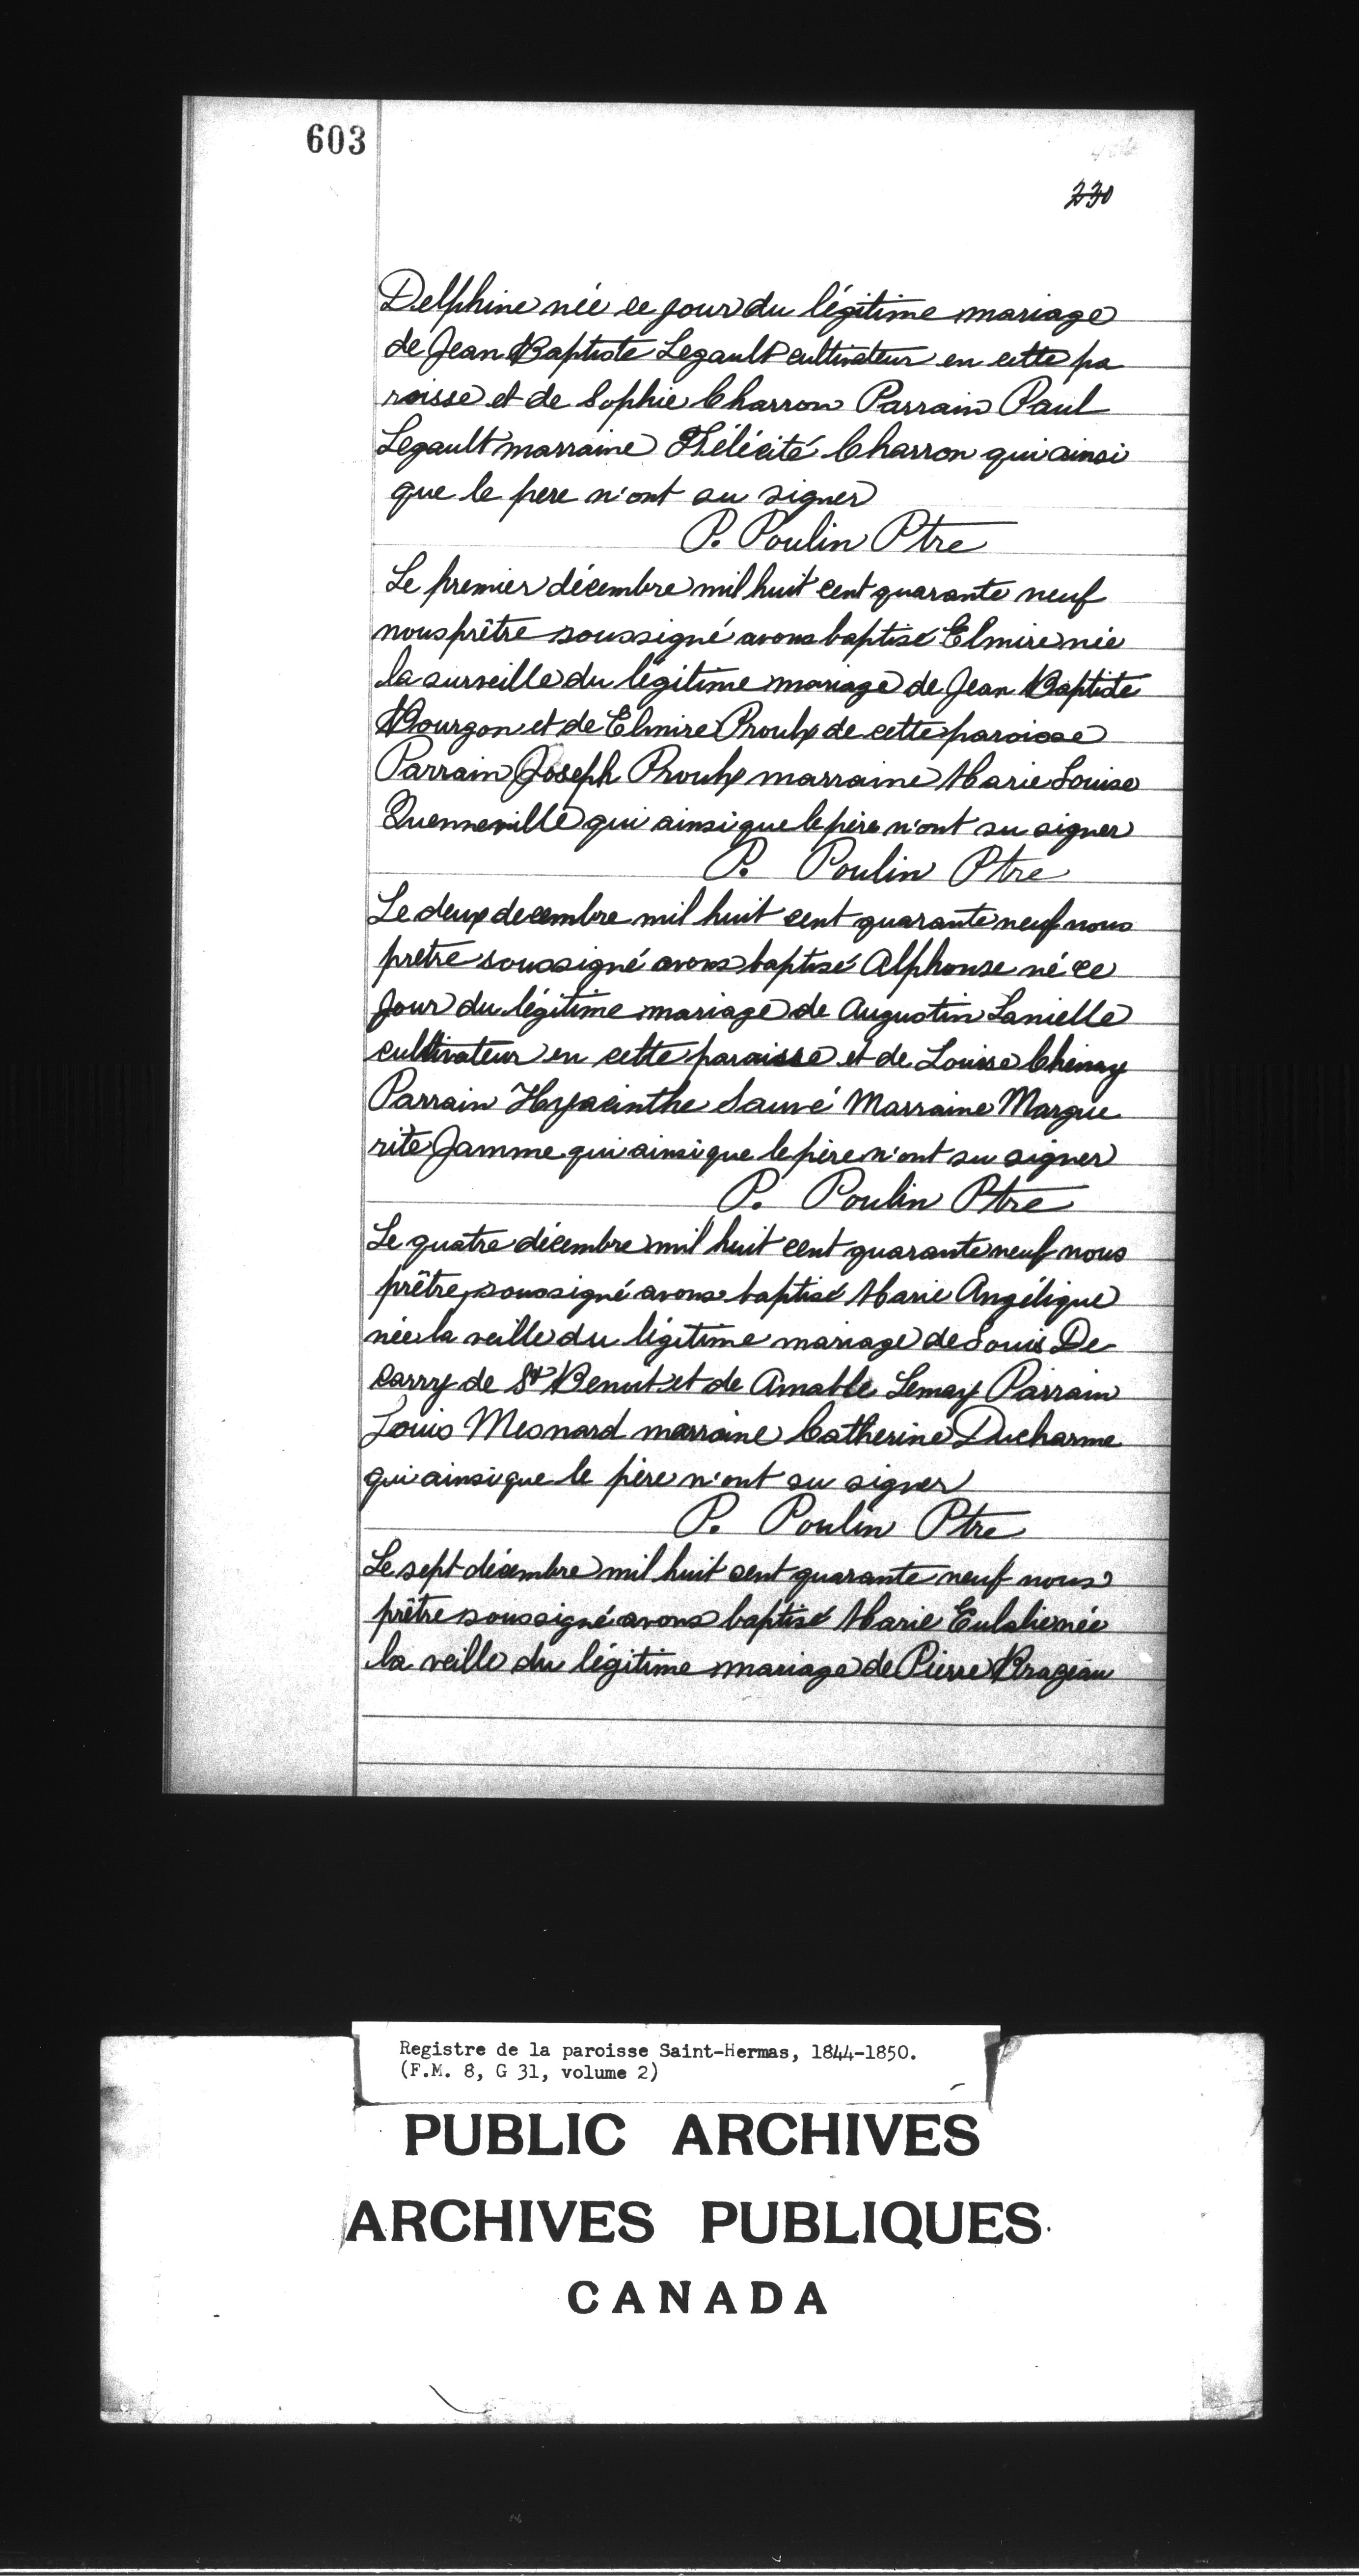 603
230
Delphine née ce jour du légitime mariage
de Jean Baptiste Legault cultivateur en cette pa
roisse et de Sophie Charron Parrain Paul
Legault marraine Félécité Charron qui ainsi
que le pere n'ont su signer
P. Poulin Ptre
Le premier décembre mil huit cent quarante neuf
nous prêtre soussigné avons baptisé Elmire née
la surveille du légitime mariage de Jean Baptiste
Bourgon et de Elmire Proulx de cette paroisse
Parrain Joseph Proulx marraine Marie Louise
Quenneville qui ainsi que le père n'ont su signer
P. Poulin Ptre
Le deux decembre mil huit cent quarante neuf nous
prêtre soussigné avons baptisé Alphonse né ce
jour du légitime mariage de Augustin Lanielle
cultivateur en cette paroisse et de Louise
Parrain Hyacinthe Sauvé Marraine Margue
rite Jamme qui ainsi que le père n'ont su signer
P. Poulin Ptre
Le quatre décembre mil huit cent quarante neuf nous
prêtre soussigné avons baptisé Marie Angélique
née la veille du légitime mariage de Louis De
carry de St Benoit et de Amable Lemay Parrain
Louis Mesnard marraine Catherine Ducharme
qui ainsi que le père n'ont su signer
P. Poulin Ptre
Le sept décembre mil huit cent quarante neuf nous
prêtre soussigné avons baptisé Marie Eulalie née
la veille du légitime mariage de Pierre Brageau
Registre de la paroisse Saint-Hermas, 1844-1850.
(F.M. 8, G 31, volume 2)
PUBLIC ARCHIVES
ARCHIVES PUBLIQUES
CANADA